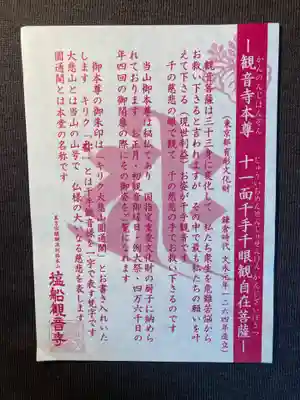 かんのんじほんぞん じゅういちめんせんじゅせんげんかんじざいぼさつ
―観音寺本尊 十一面千手千眼観自在菩薩―
(東京都有形文化財 鎌倉時代 文永元年・一二六四年造立)
観音菩薩は三十三身に変化して、私たち衆生を危難苦悩から
お救い下さると言われますが、その中で最も私たちの願いを叶
えて下さる(現世利益)お姿が千手観音です
千の慈悲の眼で観て 千の慈悲の手でお救い下さるのです
当山御本尊は秘仏であり 国指定重要文化財の厨子に納めら
れております お正月・初観音御縁日・例大祭・四万六千日の
年四回の御開帳の際にそのお姿をご覧になれます
御本尊の御朱印は「キリク大悲山圓通閣」とお書き入れいた
します キリク「」とは千手観音様を一字で表す梵字です
大悲山とは当山の山号で 仏様の大いなる慈悲を表します
圓通閣とは本堂の名称です
真言宗醍醐派別格本山
塩船観音寺